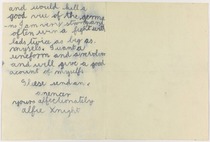 and would kill a
good vue of the germens
as I am very strong and
often win a fight with
lads twice as big as
mysels. I want a
uneform and revolver
and will give a good
acount of myself
Please send an
anencer
yours affectionately
Alfie Knight